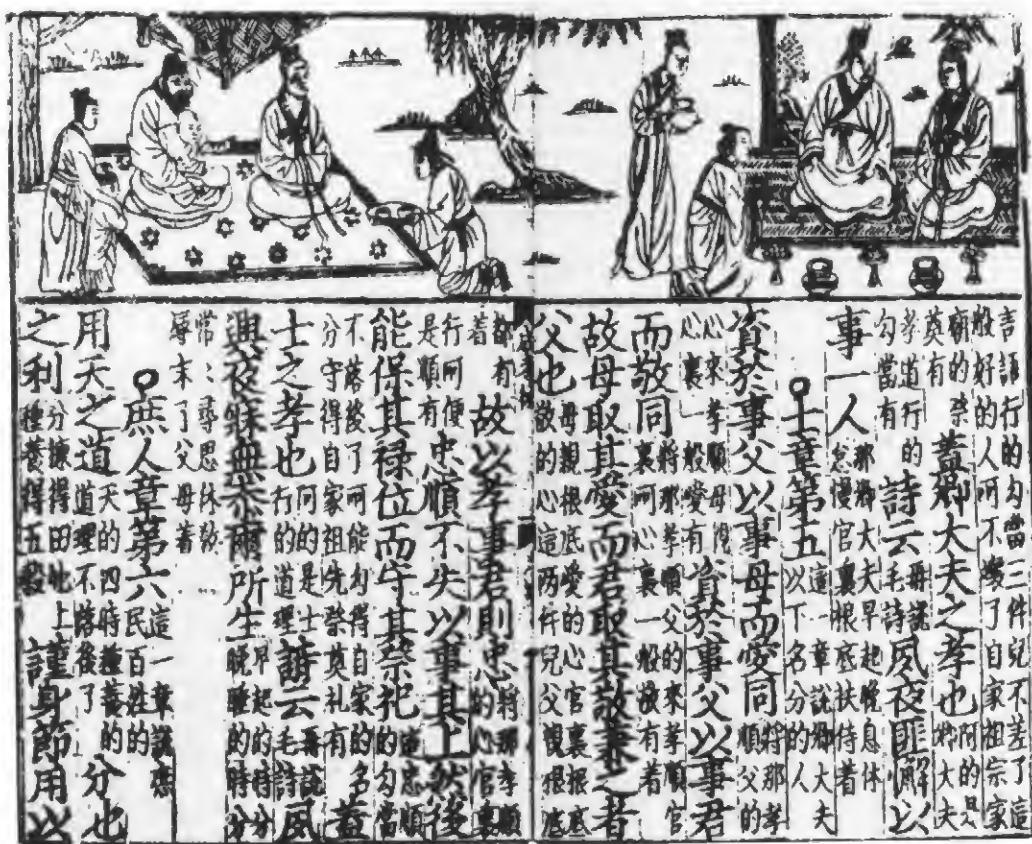 言語行的勾當三件兒不差了這
般好的人阿不㱕了自家祖宗家
廟的祭
奠有
蓋卿大夫之孝也
阿的只
卿大夫
孝道行的
勾當有
詩云
再說
毛詩
夙夜匪懈以
事一人
那卿大夫早起晚息休
怠慢官裏根底扶侍着
士章第五
這一章說卿大夫
以下名分的人
資於事父以事母而愛同
將那孝
順父的
心來孝順母阿
心裏一般愛有
資於事父以事君
而敬同
將那孝順父的來孝順官
裏阿心裏一般敬有着
故母取其愛而君取其敬兼之者
父也
母親根底愛的心官裏根底
敬的心這两件兒父親根底
都有
着
故以孝事君則忠
將那孝順
的心官裏
行阿便
是順有
忠順不失以事其上然後
能保其祿位而守其祭祀
這忠順
的勾當
不落後了阿能勾得自家的多
分守得自家祖先祭奠礼有
蓋
士之孝也
阿的是士
行的道理
詩云
再說
毛詩
夙
興夜寐無忝爾所生
早起的時分
晚睡的時分
常〻尋思休敎
辱末了父母着
庶人章第六
這一章說應
民百姓的
用天之道
天的四時種養的
道理不落後了
分地
之利
分揀得田地上
種養得五穀
謹身節用以